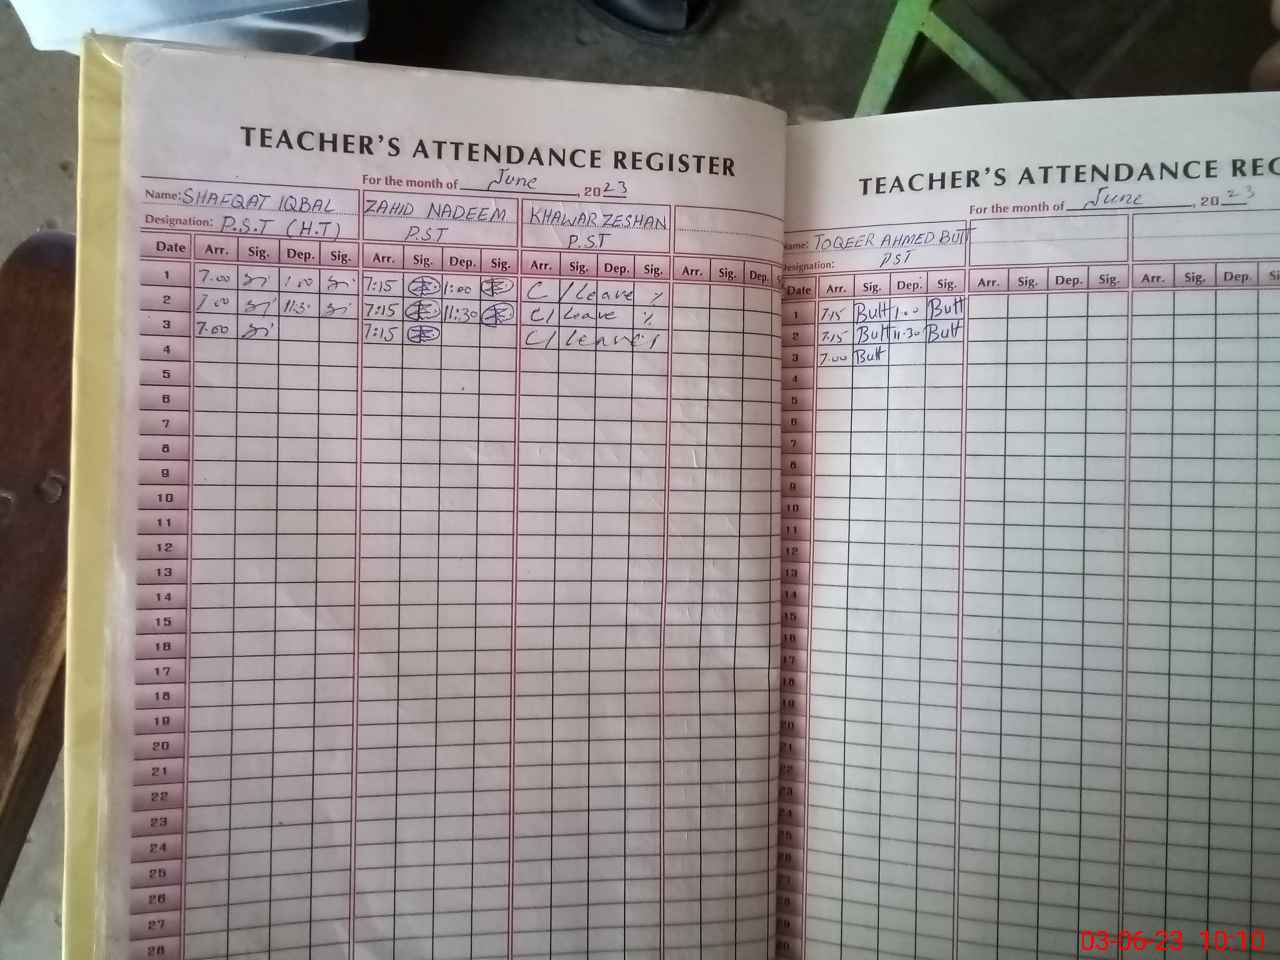 TEACHER'S ATTENDANCE REGISTER
For the month of June, 2023
Name: SHAFQAT IQBAL ZAHID NADEEM KHAWAR ZESHAN
Designation: P.S.T (H.T) P.S.T P.S.T
Date Arr. Sig. Dep. Sig. Arr. Sig. Dep. Sig. Arr. Sig. Dep. Sig. Arr. Sig. Dep.
1 7.00 1.00 7:15 1:00 C/leave
2 7.00 11:30 7:15 11:30 C/leave
3 7.00 7:15 C/leave
4
5
6
7
8
9
10
11
12
13
14
15
16
17
18
19
20
21
22
23
24
25
26
27
28
TEACHER'S ATTENDANCE REG
For the month of June, 2023
Name: TOQEER AHMED BUTT
Designation: PST
Date Arr. Sig. Dep. Sig. Arr. Sig. Dep. Sig. Arr. Sig. Dep.
1 7.15 Butt 1.0 Butt
2 7.15 Butt 11.30 Butt
3 7.00 Butt
4
5
6
7
8
9
10
11
12
13
14
15
16
17
18
19
20
21
22
23
24
25
26
03-06-23 10:10